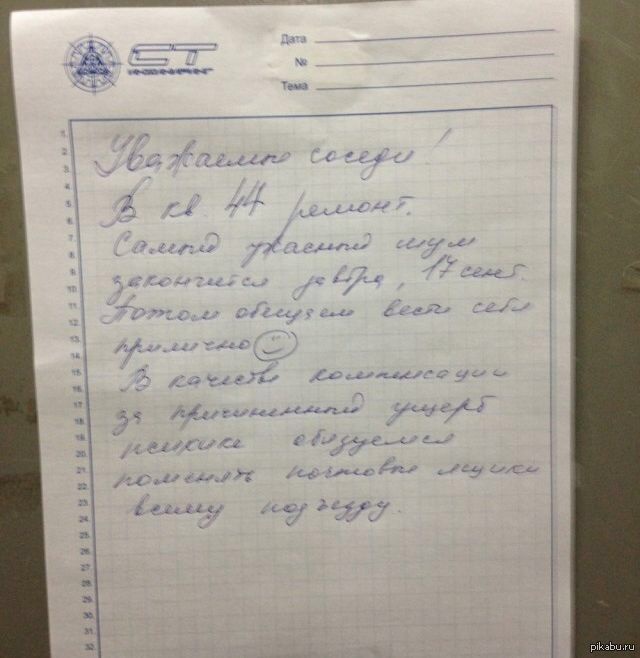 СТ
ИНЖИНИРИНГ
Дата
№
Тема
1.
2.
3.
4.
5.
6.
7.
8.
9.
10.
11.
12.
13.
14.
15.
16.
17.
18.
19.
20.
21.
22.
23.
24.
25.
26.
27.
28.
29.
30.
31.
32.
Уважаемые соседи!
В кв. 44 ремонт.
Самый ужасный шум
закончится завтра, 17 сент.
Потом обещаем вести себя
прилично
В качестве компенсации
за причиненный ущерб
психике обязуемся
поменять почтовые ящики
всему подъезду.
pikabu.ru